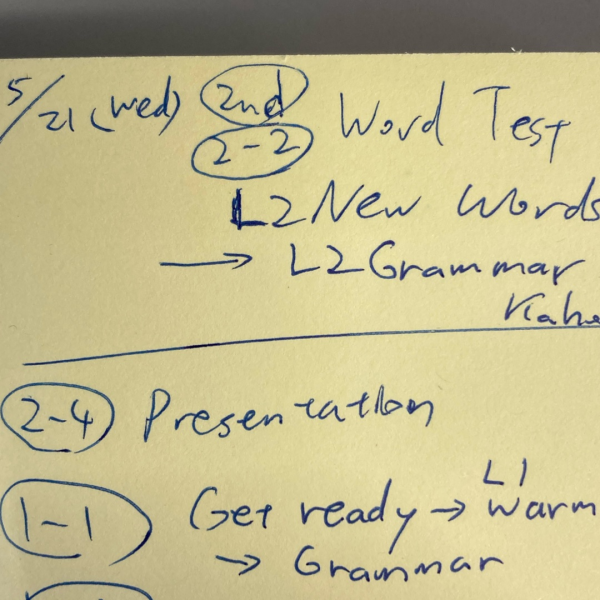 5/21 (wed) 2nd Word Test
2-2
L2 New Words
→ L2 Grammar
2-4 Presentation
L1
1-1 Get ready → Warm
→ Grammar